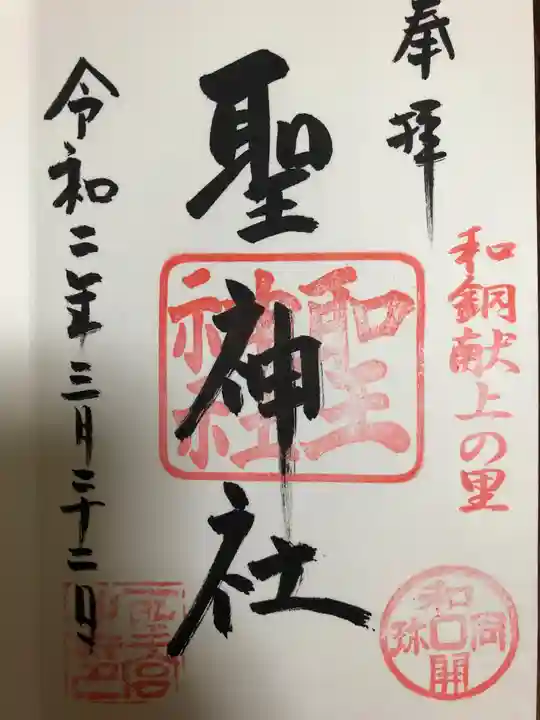 奉拝
和銅献上の里
和同開珎
聖神社
聖神社
令和二年三月二十二日